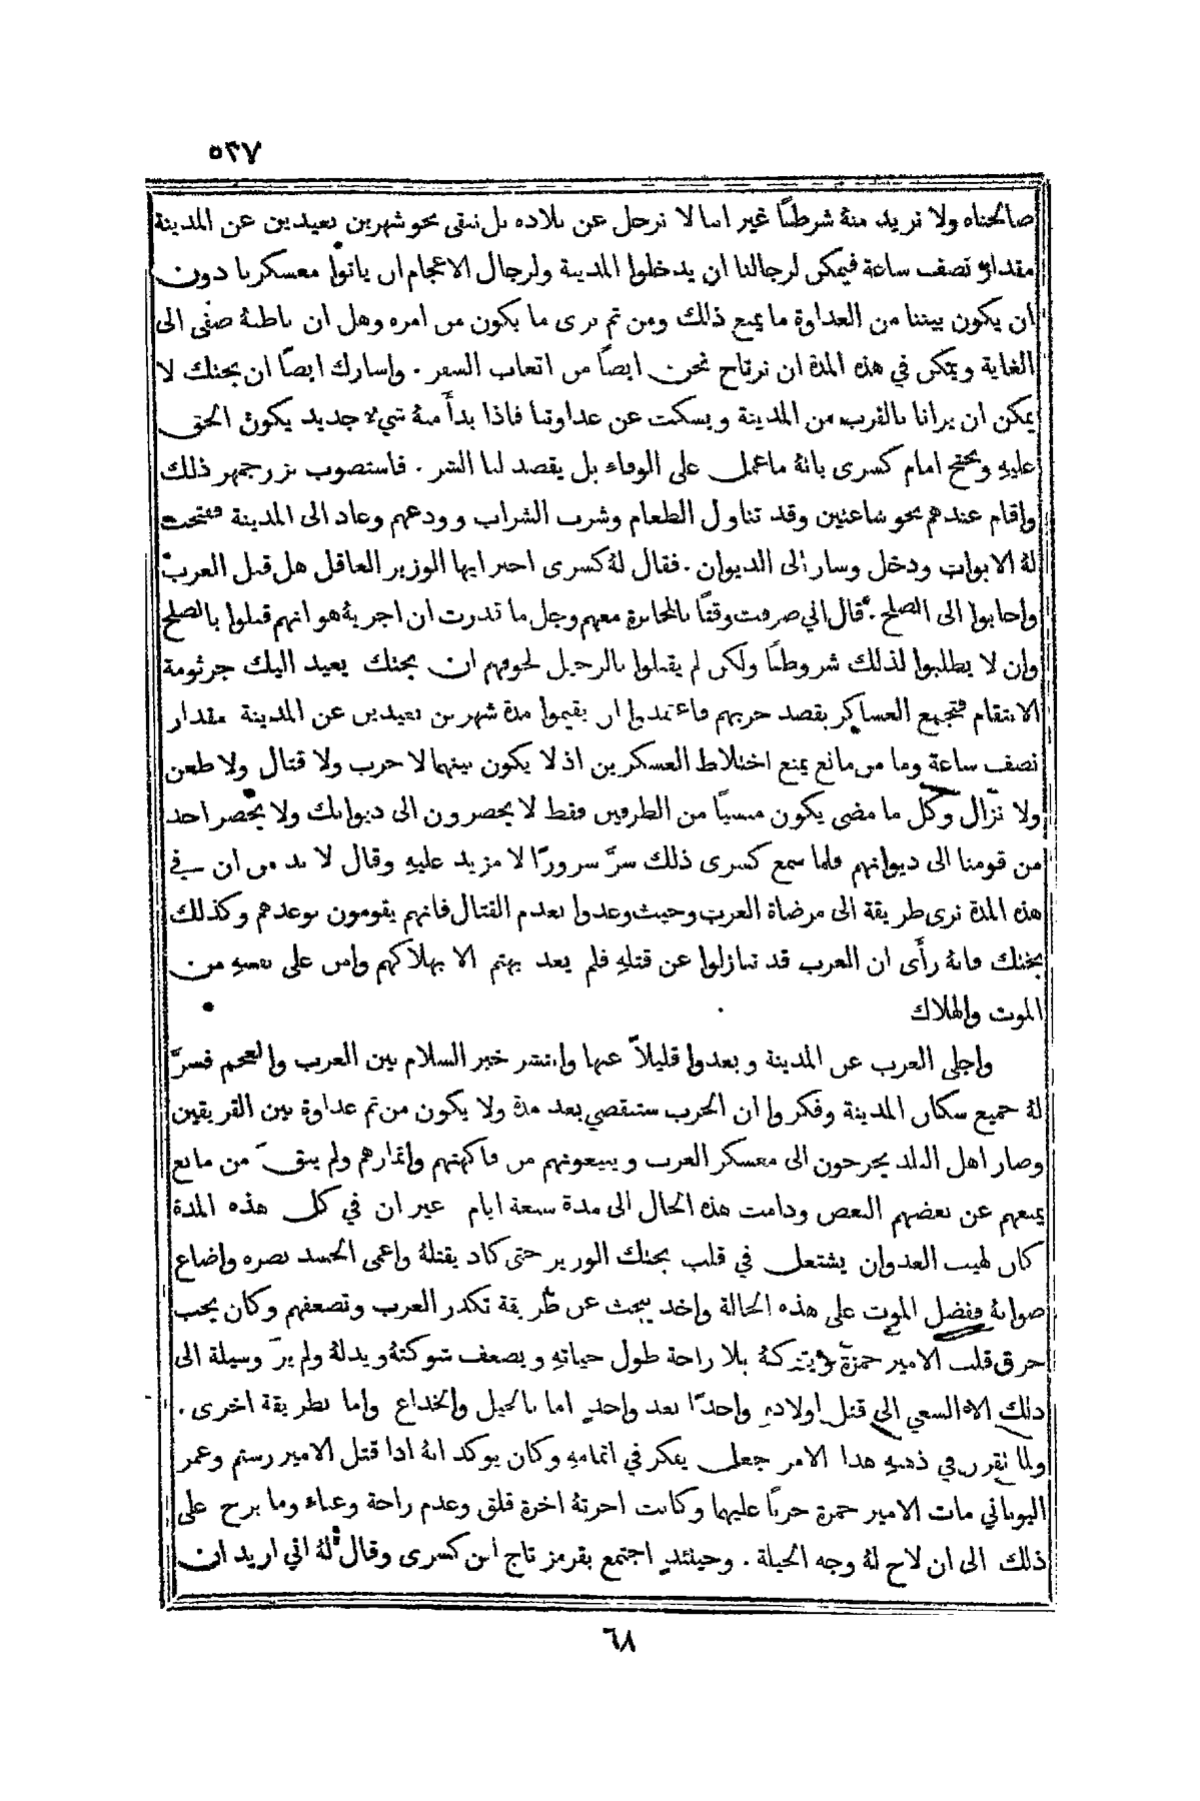 ٥٣٧
صالحناه ولا نريد منهُ شرطًا غير اننا لا نرحل عن بلاده بل نبقى نحو شهرين بعيدين عن المدينة
مقدار نصف ساعة فيمكن لرجالنا ان يدخلوا المدينة ولرجال الاعجام ان ياتوا معسكرنا دون
ان يكون بيننا من العداوة ما يمنع ذلك ومن ثم نرى ما يكون من امره وهل ان باطنهُ صفي الى
الغاية ويمكن في هذه المدة ان نرتاح نحن ايضًا من اتعاب السفر . واسارك ايضًا ان بختك لا
يمكن ان يرانا بالقرب من المدينة ويسكت عن عداوتنا فاذا بدأ منهُ شيء جديد يكون الحق
عليهِ ونحتج امام كسرى بانهُ ما عمل على الوفاء بل يقصد لنا الشر . فاستصوب بزرجمهر ذلك
واقام عندهم نحو ساعتين وقد تناول الطعام وشرب الشراب وودعهم وعاد الى المدينة ففتحت
لهُ الابواب ودخل وسار الى الديوان . فقال لهُ كسرى اخبر ايها الوزير العاقل هل قبل العرب
واجابوا الى الصلح . قال اني صرفت وقتًا بالمخابرة معهم وجل ما قدرت ان اجريهُ هو انهم قبلوا بالصلح
وان لا يطلبوا لذلك شروطًا ولكن لم يقبلوا بالرحيل لخوفهم ان بختك يعيد اليك جرثومة
الانتقام فتجمع العساكر بقصد حربهم فاعتمدوا ان يقيموا مدة شهرين بعيدين عن المدينة مقدار
نصف ساعة وما من مانع يمنع اختلاط العسكرين اذ لا يكون بينهما لا حرب ولا قتال ولا طعن
ولا نزال وكل ما مضى يكون منسيًا من الطرفين فقط لا يحضرون الى ديوانك ولا يحضر احد
من قومنا الى ديوانهم فلما سمع كسرى ذلك سرَّ سرورًا لا مزيد عليهِ وقال لا بد من ان في
هذه المدة نرى طريقة الى مرضاة العرب وحيث وعدوا بعدم القتال فانهم يقومون بوعدهم وكذلك
بختك فانهُ رأَى ان العرب قد تنازلوا عن قتلهِ فلم يعد يهتم الا بهلاكهم وامن على نفسهِ من
الموت والهلاك
واجلى العرب عن المدينة وبعدوا قليلاً عنها وانتشر خبر السلام بين العرب والعجم فسرَّ
لهُ جميع سكان المدينة وفكروا ان الحرب ستنقضي بعد مدة ولا يكون من ثم عداوة بين الفريقين
وصار اهل البلد يخرجون الى معسكر العرب ويبيعونهم من فاكهتهم واثمارهم ولم يبقَ من مانع
يمنعهم عن بعضهم البعض ودامت هذه الحال الى مدة سبعة ايام غير ان في كل هذه المدة
كان لهيب العدوان يشتعل في قلب بختك الوزير حتى كاد يقتلهُ واعمى الحسد بصره واضاع
صوابهُ ففضل الموت على هذه الحالة واخذ يبحث عن طريقة تكدر العرب وتضعفهم وكان يحب
حرق قلب الامير حمزة ويتركهُ بلا راحة طول حياتهِ ويضعف شوكتهُ ويذلهُ ولم يرَ وسيلة الى
ذلك الا السعي الى قتل اولادهِ واحدًا بعد واحدٍ اما بالحيل والخداع واما بطريقة اخرى .
ولما تقرر في ذهنهِ هذا الامر جعل يفكر في اتمامهِ وكان يوكد انهُ اذا قتل الامير رستم وعمر
اليوناني مات الامير حمزة حزنًا عليهما وكانت اخرتهُ اخرة قلق وعدم راحة وعناء وما برح على
ذلك الى ان لاح لهُ وجه الحيلة . وحينئذٍ اجتمع بقرمز تاج ابن كسرى وقال لهُ اني اريد ان
٦٨